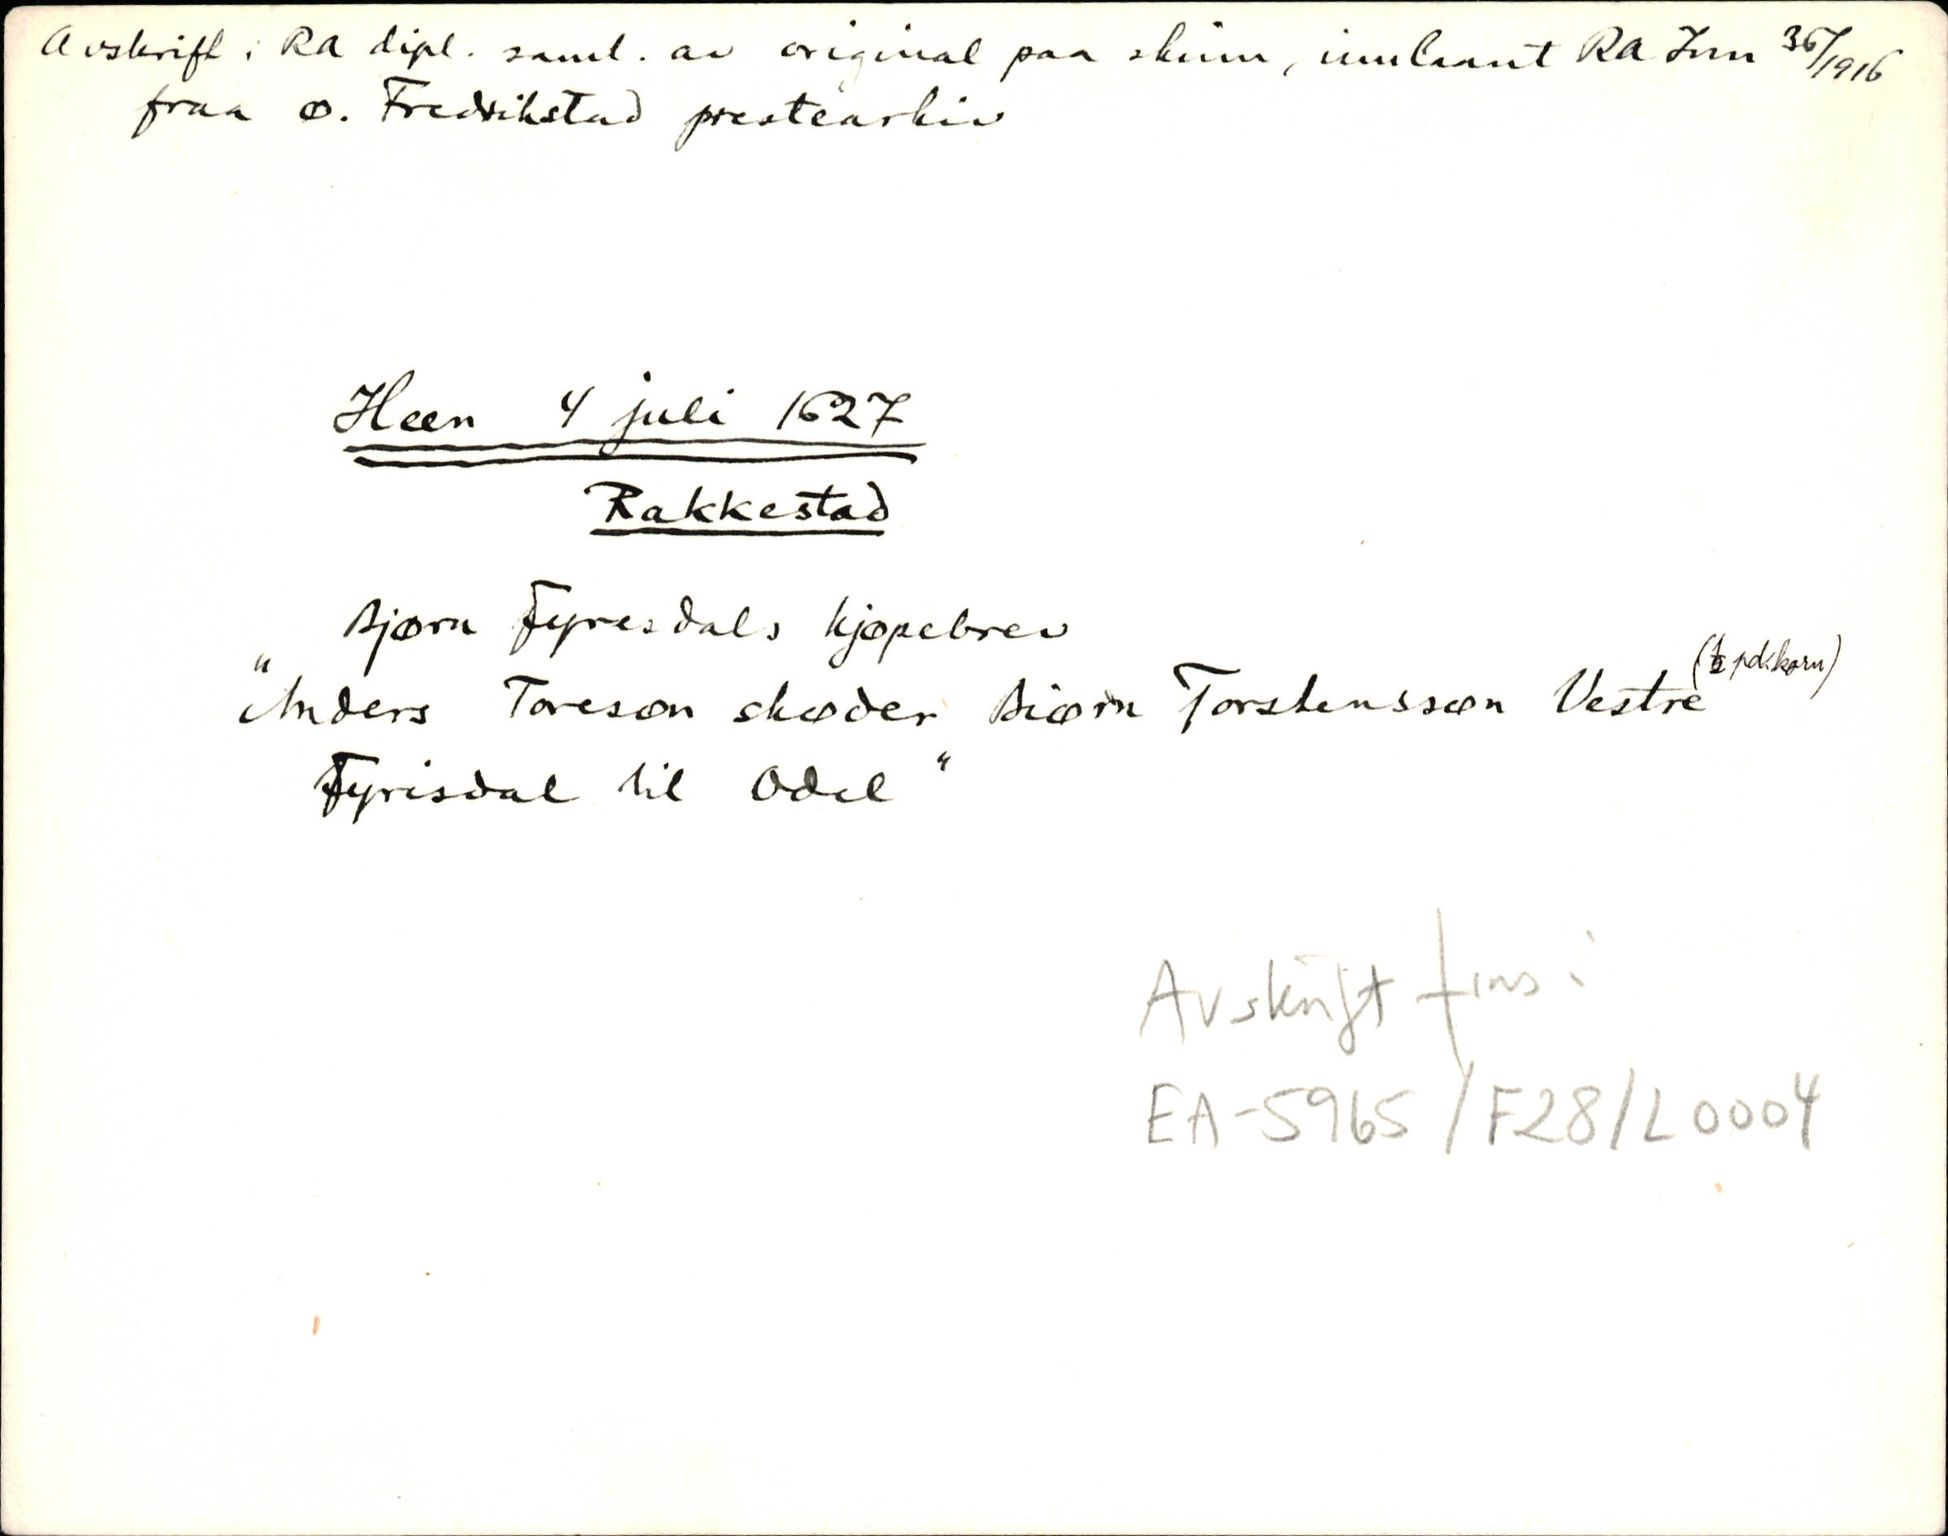 Avskrift i RA dipl. saml. av original paa skinn, innlaant RA Jnn 36/1916
fraa ø. Fredrikstad prestearkiv
Heen 4 juli 1627
Rakkestad
Bjørn Fyresdals kjøpebrev
(½ pd. korn)
"Anders Toresøn skøder Biørn Torstenssøn Vestre
Fyrisdal til Odel"
Avskrift fins i
EA-5965/F28/L0004